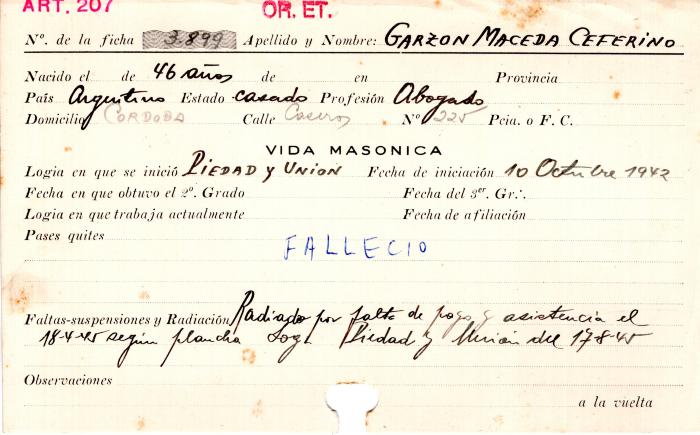 ART. 207
OR. ET.
Nº. de la ficha 3.899 Apellido y Nombre: GARZON MACEDA CEFERINO
Nacido el de 46 años de en Provincia
País Argentino Estado casado Profesión Abogado
Domicilio CORDOBA Calle Caseros Nº 225 Pcia. o F. C.
VIDA MASONICA
Logia en que se inició PIEDAD y UNION Fecha de iniciación 10 Octubre 1942
Fecha en que obtuvo el 2º. Grado Fecha del 3er. Gr∴.
Logia en que trabaja actualmente Fecha de afiliación
Pases quites
FALLECIO
Faltas-suspensiones y Radiación Radiado por falta de pago y asistencia el
18-4-45 según plancha Log∴ Piedad y Unión del 17-8-45
Observaciones
a la vuelta